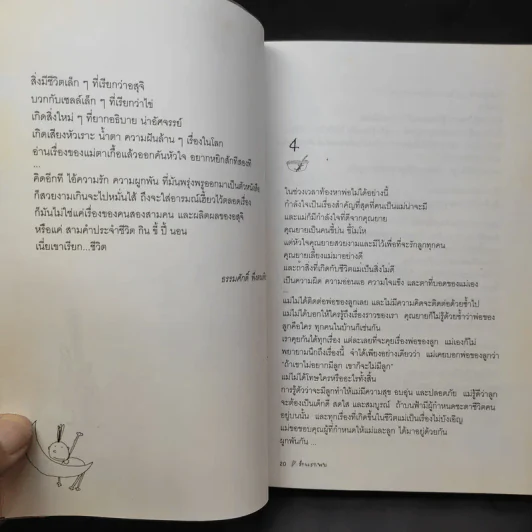 สิ่งมีชีวิตเล็ก ๆ ที่เรียกว่าอสุจิ
บวกกับเซลล์เล็ก ๆ ที่เรียกว่าไข่
เกิดสิ่งใหม่ ๆ ที่ยากอธิบาย น่าอัศจรรย์
เกิดเสียงหัวเราะ น้ำตา ความฝันล้าน ๆ เรื่องในโลก
อ่านเรื่องของแม่ตาเกื้อแล้วออกคันหัวใจ อยากหยิกสักทีสองที
...
คิดอีกที ไอ้ความรัก ความผูกพัน ที่มันพรุ่งพรูออกมาเป็นตัวหนังสือ
ก็สวยงามเกินจะไปหมั่นไส้ ถึงจะใส่อารมณ์เฮี้ยวไว้ตลอดเรื่อง
ก็มันไม่ใช่แค่เรื่องของคนสองสามคน และผลิตผลของอสุจิ
หรือแค่ สามคำประจำชีวิต กิน ขี้ ปี้ นอน
เนี่ยเขาเรียก...ชีวิต
ธรรมศักดิ์
4
ในช่วงเวลาท้องหาพ่อไม่ได้อย่างนี้
กำลังใจเป็นเรื่องสำคัญที่สุดที่คนเป็นแม่น่าจะมี
และแม่ก็มีกำลังใจที่ดีจากคุณยาย
คุณยายเป็นคนขี้บ่น ขี้โมโห
แต่หัวใจคุณยายสวยงามและมีไว้เพื่อที่จะรักลูกทุกคน
คุณยายเลี้ยงแม่มาอย่างดี
และถ้าสิ่งที่เกิดกับชีวิตแม่เป็นสิ่งไม่ดี
เป็นความผิด ความอ่อนแอ ความใจแข็ง และตาที่บอดของแม่เอง
...
แม่ไม่ได้ติดต่อพ่อของลูกเลย และไม่มีความคิดจะติดต่อด้วยซ้ำไป
แม่ไม่ได้บอกให้ใครรู้ถึงเรื่องราวของเรา คุณยายก็ไม่รู้ด้วยซ้ำว่าพ่อของ
ลูกคือใคร ทุกคนในบ้านก็เช่นกัน
เราคุยกันได้ทุกเรื่อง แต่ละเลยที่จะคุยเรื่องพ่อของลูก แม่เองก็ไม่
พยายามนึกถึงเรื่องนี้ จำได้เพียงอย่างเดียวว่า แม่เคยบอกพ่อของลูกว่า
"ถ้าเขาไม่อยากมีลูก เขาก็จะไม่มีลูก"
แม่ไม่ได้โทษใครหรืออะไรทั้งสิ้น
การรู้ตัวว่าจะมีลูกทำให้แม่มีความสุข อบอุ่น และปลอดภัย แม่รู้ดีว่าลูก
จะต้องเป็นเด็กดี สดใส และสมบูรณ์ ถ้าบนฟ้ามีผู้กำหนดชะตาชีวิตคน
อยู่บนนั้น และทุกเรื่องที่เกิดขึ้นในชีวิตแม่เป็นเรื่องไม่บังเอิญ
แม่ขอขอบคุณผู้ที่กำหนดให้แม่และลูก ได้มาอยู่ด้วยกัน
ผูกพันกัน ...
20